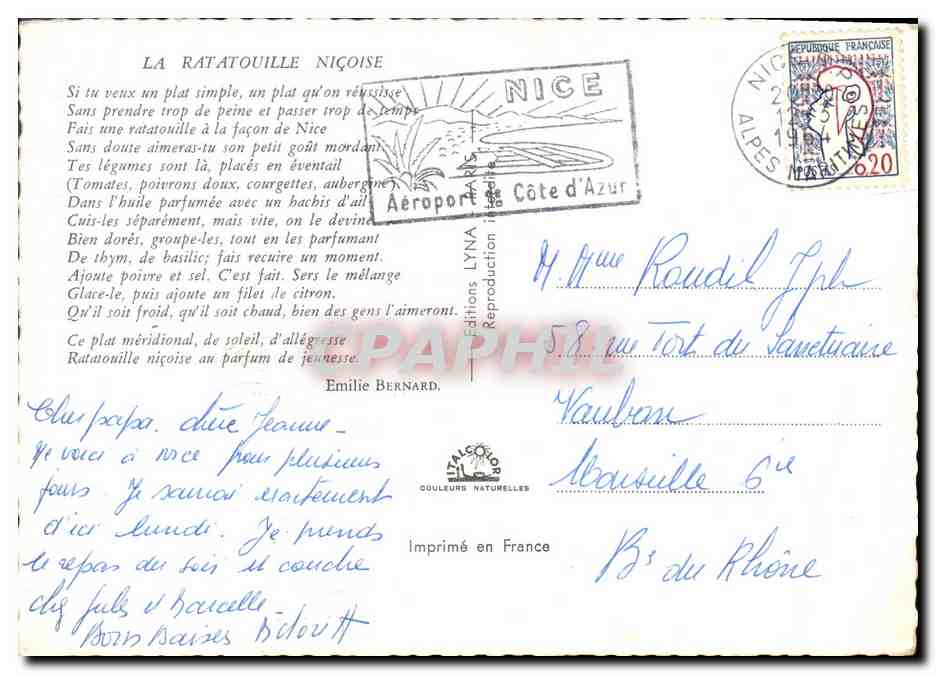 LA RATATOUILLE NIÇOISE
Si tu veux un plat simple, un plat qu'on réussisse
Sans prendre trop de peine et passer trop de temps
Fais une ratatouille à la façon de Nice
Sans doute aimeras-tu son petit goût mordant.
Tes légumes sont là, placés en éventail
(Tomates, poivrons doux, courgettes, aubergine),
Dans l'huile parfumée avec un hachis d'ail
Cuis-les séparément, mais vite, on le devine
Bien dorés, groupe-les, tout en les parfumant
De thym, de basilic; fais recuire un moment.
Ajoute poivre et sel. C'est fait. Sers le mélange
Glace-le, puis ajoute un filet de citron.
Qu'il soit froid, qu'il soit chaud, bien des gens l'aimeront.
Ce plat méridional, de soleil, d'allégresse
Ratatouille niçoise au parfum de jeunesse.
Emilie BERNARD.
Cher papa. chère Jeanne_
Me voici à Nice pour plusieurs
jours. Je saurai exactement
d'ici lundi. Je prends
le repas du soir et couche
chez Jules et Marcelle_
Bons Baisers
NICE
Aéroport de la Côte d'Azur
Editions LYNA - PARIS
Reproduction interdite
ITALCOLOR
COULEURS NATURELLES
Imprimé en France
NICE
1964
ALPES MARITIMES
REPUBLIQUE FRANÇAISE
0,20
M. Mme Roudil Jph
58 rue Fort du Sanctuaire
Vauban
Marseille 6ie
Bs du Rhône
CPAPHIL